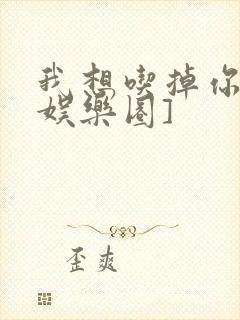 我想喫掉你
娛樂圈]
歪爽